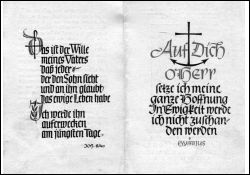 Das ist der Wille
meines Vaters
daß jeder
der den Sohn sieht
und an ihn glaubt
Das ewige Leben habe
Ich werde ihn
auferwecken
am jüngsten Tage.
JOH.
Auf Dich
O HERR
setze ich meine
ganze Hoffnung
In Ewigkeit werde
ich nicht zuschan-
den werden